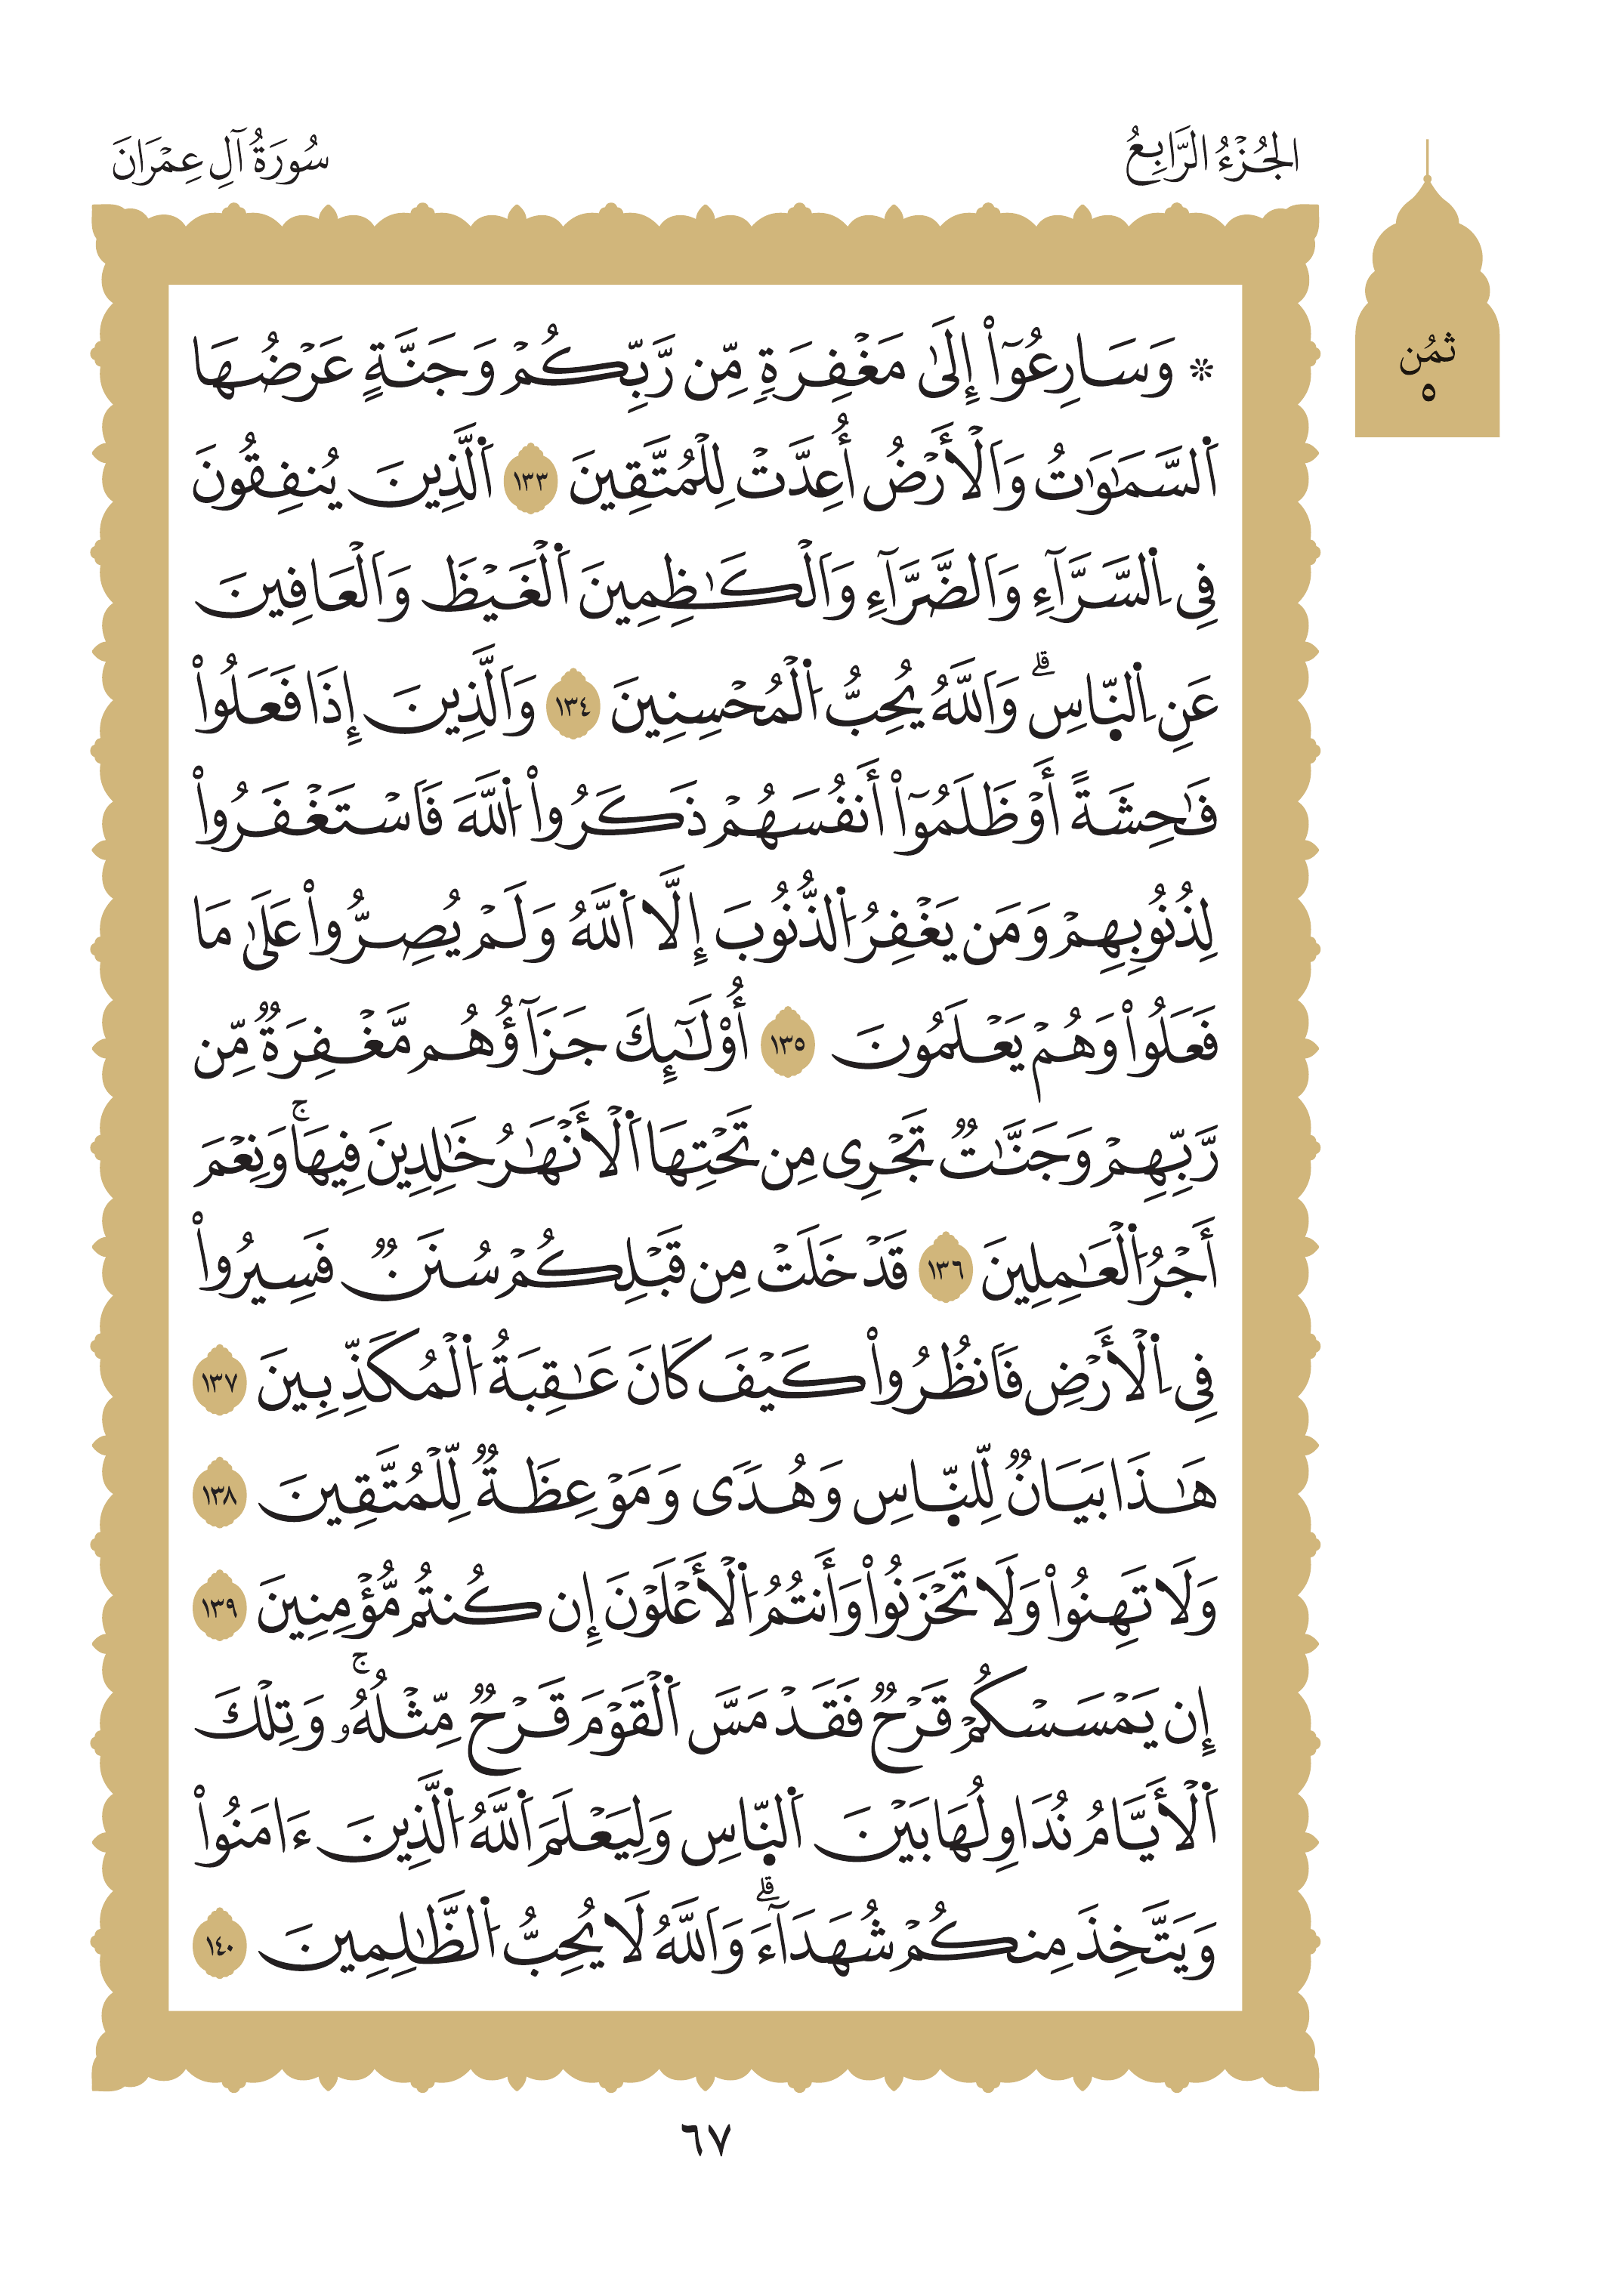 الجُزْءُ الرَّابِعُ
سُورَةُ آلِ عِمْرَانَ
ثمُن
٥
۞ وَسَارِعُوٓاْ إِلَىٰ مَغْفِرَةٍ مِّن رَّبِّكُمْ وَجَنَّةٍ عَرْضُهَا
اَ۬لسَّمَٰوَٰتُ وَالْأَرْضُ أُعِدَّتْ لِلْمُتَّقِينَ ١٣٣ اَ۬لَّذِينَ يُنفِقُونَ
فِى اِ۬لسَّرَّآءِ وَالضَّرَّآءِ وَالْكَٰظِمِينَ اَ۬لْغَيْظَ وَالْعَافِينَ
عَنِ اِ۬لنّ۪اسِۗ وَاللَّهُ يُحِبُّ اُ۬لْمُحْسِنِينَ ١٣٤ وَالَّذِينَ إِذَا فَعَلُواْ
فَٰحِشَةً أَوْ ظَلَمُوٓاْ أَنفُسَهُمْ ذَكَرُواْ اُ۬للَّهَ فَاسْتَغْفَرُواْ
لِذُنُوبِهِمْ وَمَن يَغْفِرُ اُ۬لذُّنُوبَ إِلَّا اَ۬للَّهُ وَلَمْ يُصِرُّواْ عَلَىٰ مَا
فَعَلُواْ وَهُمْ يَعْلَمُونَ ١٣٥ أُوْلَٰٓئِكَ جَزَآؤُهُم مَّغْفِرَةٌ مِّن
رَّبِّهِمْ وَجَنَّٰتٌ تَجْرِى مِن تَحْتِهَا اَ۬لْأَنْهَٰرُ خَٰلِدِينَ فِيهَاۚ وَنِعْمَ
أَجْرُ اُ۬لْعَٰمِلِينَ ١٣٦ قَدْ خَلَتْ مِن قَبْلِكُمْ سُنَنٌ فَسِيرُواْ
فِى اِ۬لْأَرْضِ فَانظُرُواْ كَيْفَ كَانَ عَٰقِبَةُ اُ۬لْمُكَذِّبِينَ ١٣٧
هَٰذَا بَيَانٌ لِّلنّ۪اسِ وَهُدًى وَمَوْعِظَةٌ لِّلْمُتَّقِينَ ١٣٨
وَلَا تَهِنُواْ وَلَا تَحْزَنُواْ وَأَنتُمُ اُ۬لْأَعْلَوْنَ إِن كُنتُم مُّؤْمِنِينَ ١٣٩
إِن يَمْسَسْكُمْ قَرْحٌ فَقَدْ مَسَّ اَ۬لْقَوْمَ قَرْحٌ مِّثْلُهُۥۚ وَتِلْكَ
اَ۬لْأَيَّامُ نُدَاوِلُهَا بَيْنَ اَ۬لنّ۪اسِ وَلِيَعْلَمَ اَ۬للَّهُ اُ۬لَّذِينَ ءَامَنُواْ
وَيَتَّخِذَ مِنكُمْ شُهَدَآءَۗ وَاللَّهُ لَا يُحِبُّ اُ۬لظَّٰلِمِينَ ١٤٠
٦٧